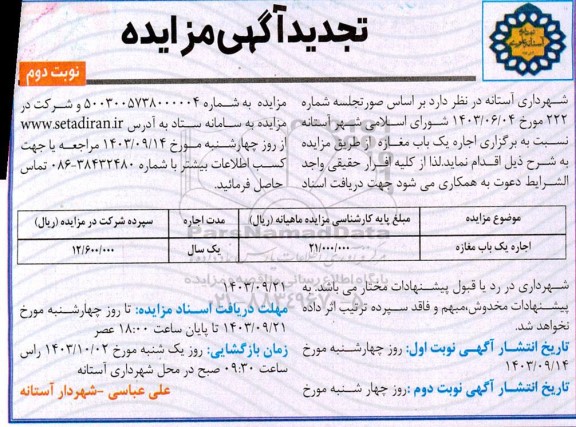 تجدیدآگهی مزایده
نوبت دوم
شهرداری آستانه در نظر دارد بر اساس صورتجلسه شماره
۲۲۲ مورخ ۱۴۰۳/۰۶/۰۴ شورای اسلامی شهر آستانه
نسبت به برگزاری اجاره یک باب مغازه از طریق مزایده
به شرح ذیل اقدام نماید.لذا از کلیه افراد حقیقی واجد
الشرایط دعوت به همکاری می شود جهت دریافت اسناد
مزایده به شماره ۵۰۰۳۰۰۵۷۳۸۰۰۰۰۰۴ و شرکت در
مزایده به سامانه ستاد به آدرس www.setadiran.ir
از روز چهارشنبه مورخ ۱۴۰۳/۰۹/۱۴ مراجعه یا جهت
کسب اطلاعات بیشتر با شماره ۳۸۴۳۲۴۸۰-۰۸۶ تماس
حاصل فرمائید.
موضوع مزایده مبلغ پایه کارشناسی مزایده ماهیانه (ریال) مدت اجاره سپرده شرکت در مزایده (ریال)
اجاره یک باب مغازه ۲۱/۰۰۰/۰۰۰ یک سال ۱۲/۶۰۰/۰۰۰
شهرداری در رد یا قبول پیشنهادات مختار می باشد. به
پیشنهادات مخدوش،مبهم و فاقد سپرده ترتیب اثر داده
نخواهد شد.
تاریخ انتشار آگهی نوبت اول: روز چهارشنبه مورخ
۱۴۰۳/۰۹/۱۴
تاریخ انتشار آگهی نوبت دوم :روز چهار شنبه مورخ
۱۴۰۳/۰۹/۲۱
مهلت دریافت اسناد مزایده: تا روز چهارشنبه مورخ
۱۴۰۳/۰۹/۲۱ تا پایان ساعت ۱۸:۰۰ عصر
زمان بازگشایی: روز یک شنبه مورخ ۱۴۰۳/۱۰/۰۲ راس
ساعت ۰۹:۳۰ صبح در محل شهرداری آستانه
علی عباسی -شهردار آستانه
ParsNamadData
پایگاه اطلاع رسانی مناقصه و مزایده